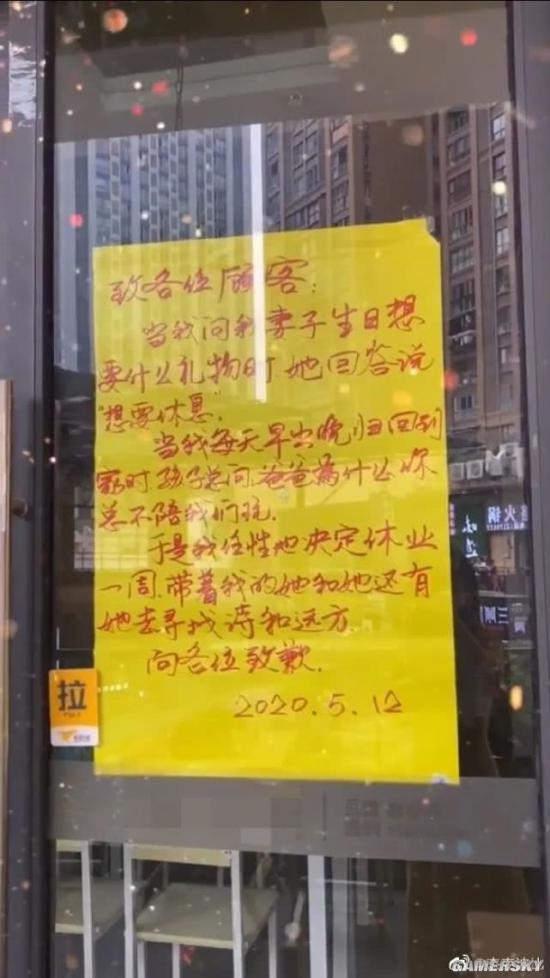 致各位顾客：
当我问我妻子生日想
要什么礼物时,她回答说
"想要休息".
当我每天早出晚归回到
家时孩子总问,爸爸为什么你
总不陪我们玩.
于是我任性地决定休业
一周.带着我的她和她还有
她去寻找诗和远方.
向各位致歉.
2020.5.12
拉
火锅
三顾
GAMERSKY